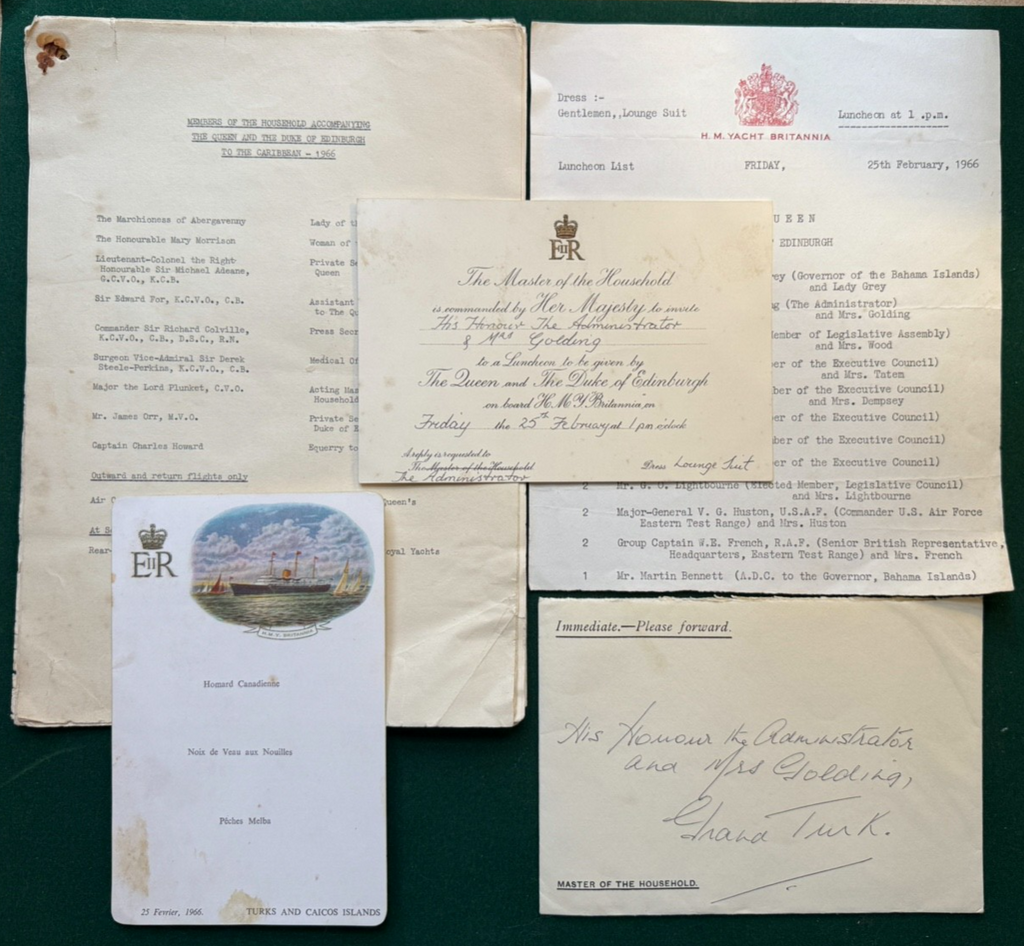 MEMBERS OF THE HOUSEHOLD ACCOMPANYING
THE QUEEN AND THE DUKE OF EDINBURGH
TO THE CARIBEBAN - 1966
The Marchioness of Abergavenny Lady of t
The Honourable Mary Morrison Woman of
Lieutenant-Colonel the Right
Honourable Sir Michael Adeane, Private Se
G.C.V.O., K.C.B. Queen
Sir Edward For, K.C.V.O., C.B. Assistant
to The Qu
Commander Sir Richard Colville, Press Secr
K.C.V.O., C.B., D.S.C., R.N.
Surgeon Vice-Admiral Sir Derek Medical Of
Steele-Perkins, K.C.V.O., C.B.
Major the Lord Plunket, C.V.O. Acting Mas
Household
Mr. James Orr, M.V.O. Private Se
Duke of E
Captain Charles Howard Equerry to
Outward and return flights only
Air C ueen's
At S
Rear- oyal Yachts
Dress :-
Gentlemen,,Lounge Suit
H.M. YACHT BRITANNIA
Luncheon at 1 .p.m.
Luncheon List FRIDAY, 25th February, 1966
UEEN
EDINBURGH
ey (Governor of the Bahama Islands)
and Lady Grey
g (The Administrator)
and Mrs. Golding
ember of Legislative Assembly)
and Mrs. Wood
er of the Executive Council)
and Mrs. Tatem
ber of the Executive Council)
and Mrs. Dempsey
er of the Executive Council)
ber of the Executive Council)
er of the Executive Council)
2 Mr. G. O. Lightbourne (Elected Member, Legislative Council)
and Mrs. Lightbourne
2 Major-General V. G. Huston, U.S.A.F. (Commander U.S. Air Force
Eastern Test Range) and Mrs. Huston
2 Group Captain W.E. French, R.A.F. (Senior British Representative,
Headquarters, Eastern Test Range) and Mrs. French
1 Mr. Martin Bennett (A.D.C. to the Governor, Bahama Islands)
EIIR
The Master of the Household
is commanded by Her Majesty to invite
His Honour The Administrator
& Mrs Golding
to a Luncheon to be given by
The Queen and The Duke of Edinburgh
on board H.M.Y. Britannia, on
Friday the 25th February at 1 pm o'clock
A reply is requested to
The Master of the Household
The Administrator
Dress Lounge Suit
EIIR
H.M.Y. BRITANNIA
Homard Canadienne
Noix de Veau aux Nouilles
Pêches Melba
25 Fevrier, 1966. TURKS AND CAICOS ISLANDS
Immediate.—Please forward.
His Honour the Administrator
and Mrs Golding,
Grand Turk.
MASTER OF THE HOUSEHOLD.